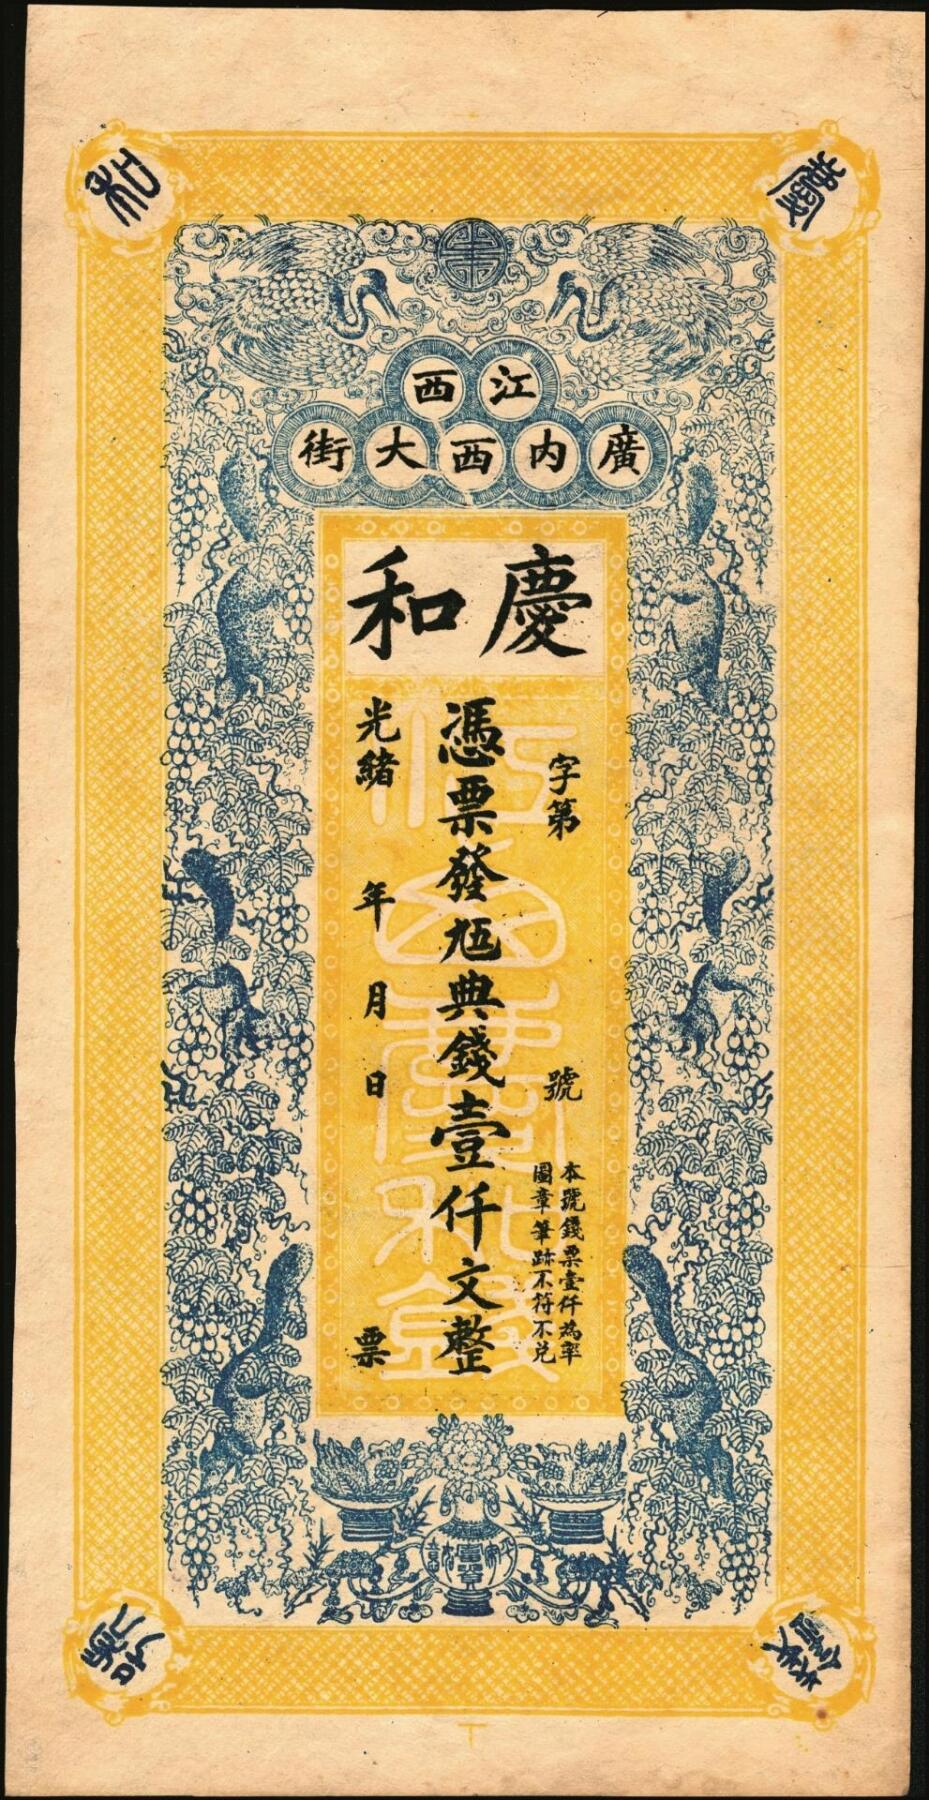 慶
和
錢
號
江西
廣內西大街
慶和
字第 號
本號錢票壹仟為率
圖章筆跡不符不兌
憑票發九五典錢壹仟文整
光緒 年 月 日 票